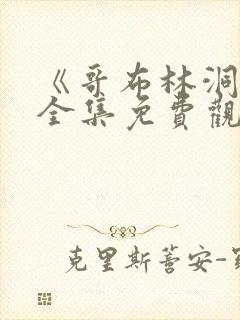 《哥布林洞
全集免費觀
克里斯蒂安-